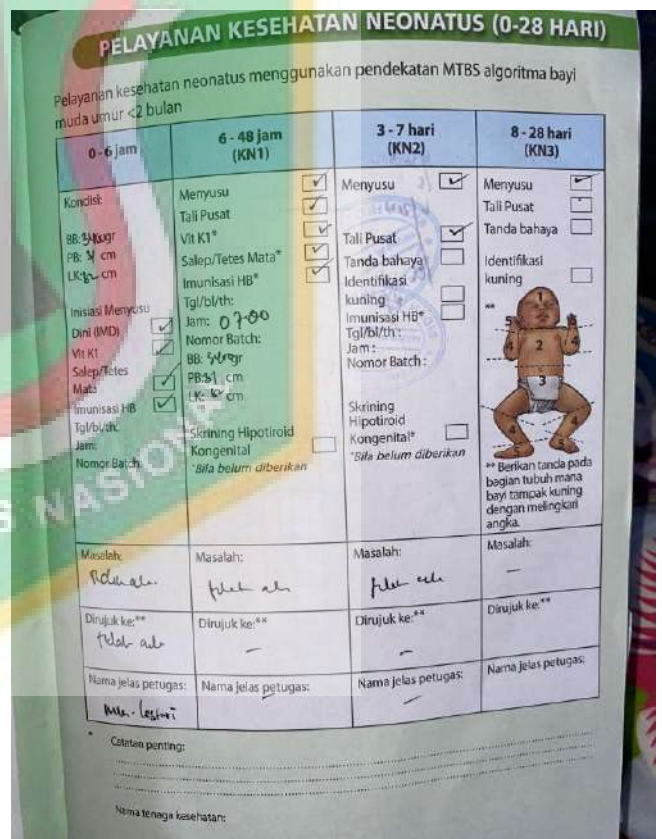 PELAYANAN KESEHATAN NEONATUS (0-28 HARI)
Pelayanan kesehatan neonatus menggunakan pendekatan MTBS algoritma bayi
muda umur <2 bulan
0-6 jam
Kondisi:
BB: gr
PB: cm
LK: cm
Inisiasi Menyusu
Dini (IMD)
Vit K1
Salep/Tetes
Mata
Imunisasi HB
Tgl/bl/th:
Jam:
Nomor Batch:
6 - 48 jam
(KN1)
Menyusu
Tali Pusat
Vit K1*
Salep/Tetes Mata*
Imunisasi HB*
Tgl/bl/th:
Jam: 0700
Nomor Batch:
BB: gr
PB: cm
LK: cm
Skrining Hipotiroid
Kongenital
*Bila belum diberikan
3 - 7 hari
(KN2)
Menyusu
Tali Pusat
Tanda bahaya
Identifikasi
kuning
Imunisasi HB*
Tgl/bl/th:
Jam:
Nomor Batch:
Skrining
Hipotiroid
Kongenital*
*Bila belum diberikan
8 - 28 hari
(KN3)
Menyusu
Tali Pusat
Tanda bahaya
Identifikasi
kuning
**
1
4 2 4
3
4 4
5 5
** Berikan tanda pada
bagian tubuh mana
bayi tampak kuning
dengan melingkari
angka.
Masalah:
Masalah:
Masalah:
Masalah:
Dirujuk ke:**
Dirujuk ke:**
Dirujuk ke:**
Dirujuk ke:**
Nama jelas petugas:
Lestari
Nama jelas petugas:
Nama jelas petugas:
Nama jelas petugas:
* Catatan penting:
Nama tenaga kesehatan:
NASIONAL